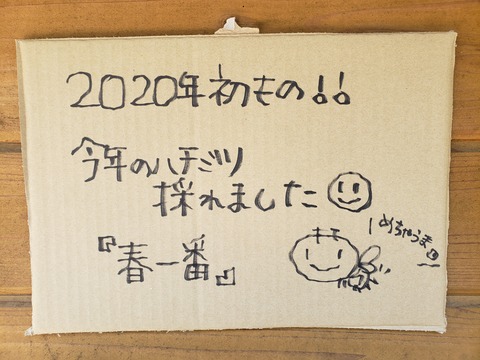 2020年初もの!!
今年のハチミツ
採れました
めちゃうま
『春一番』